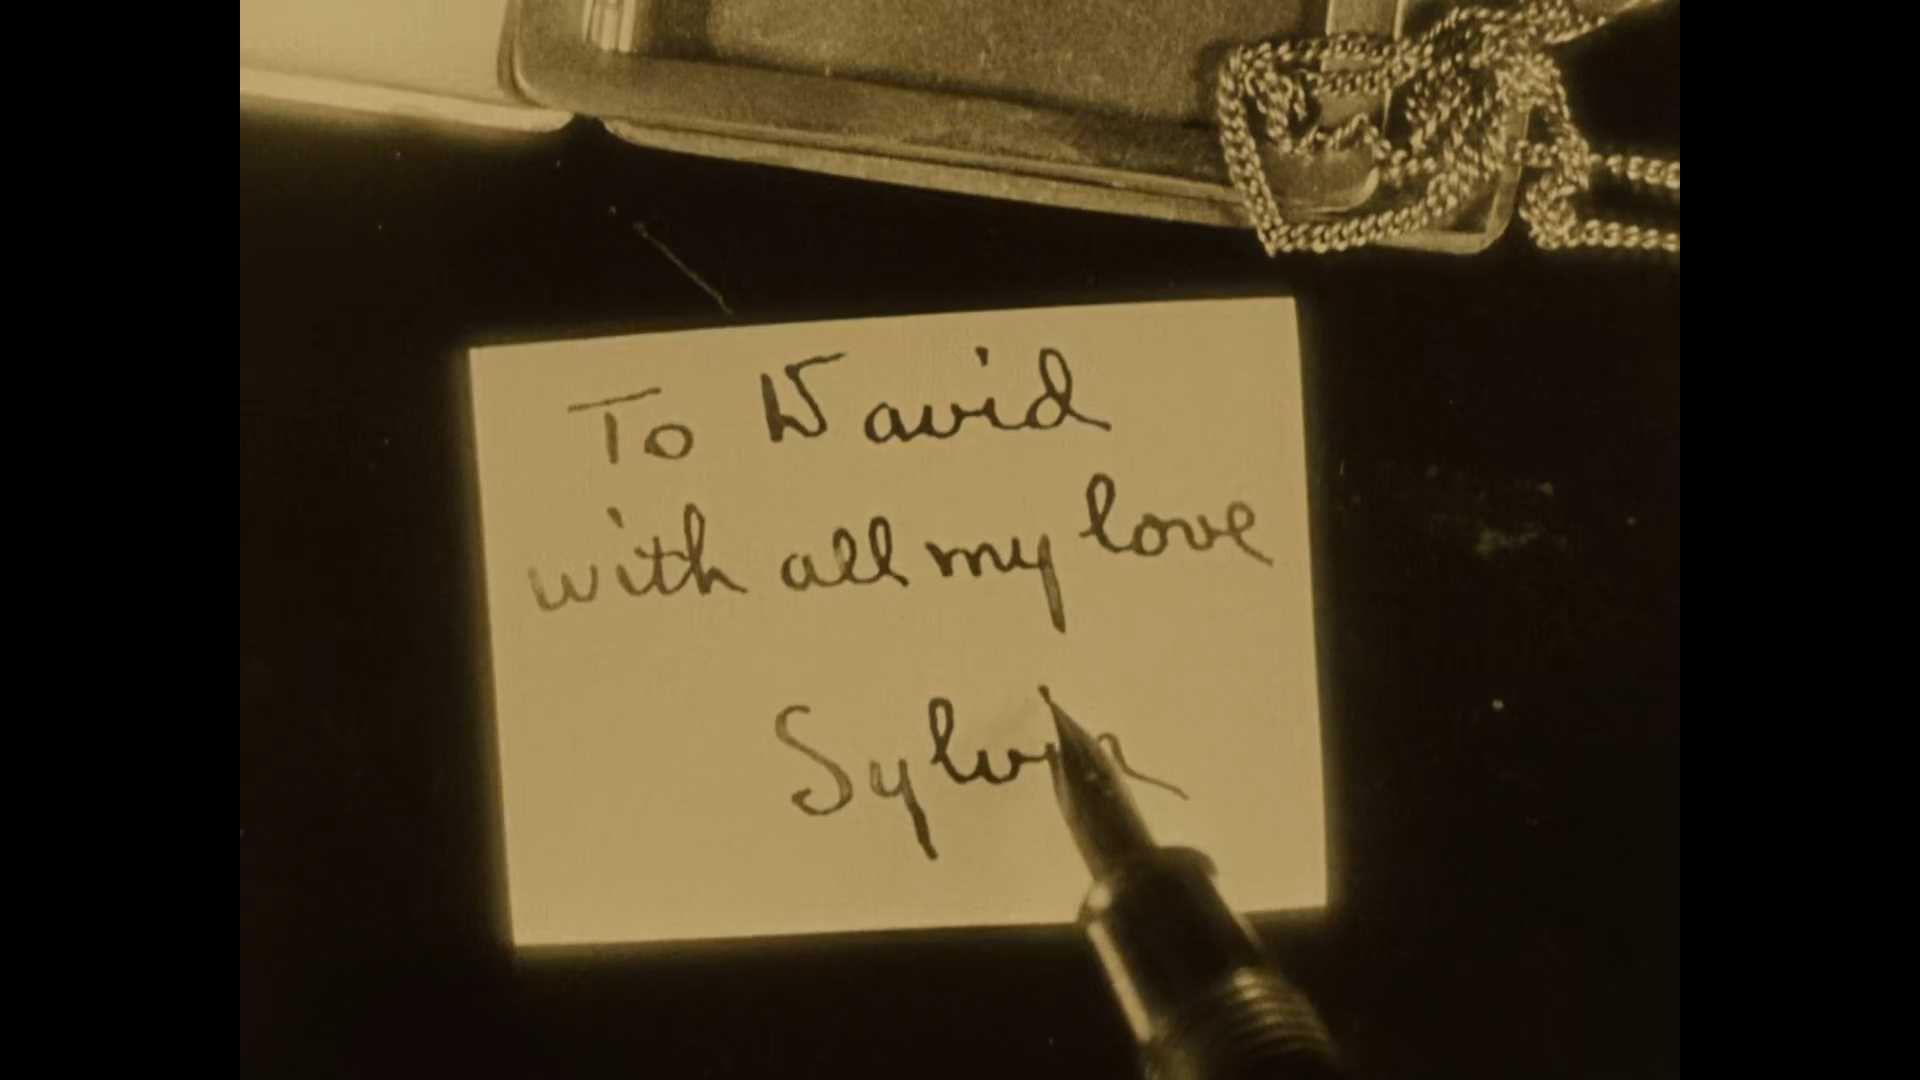 To David
with all my love
Sylvia